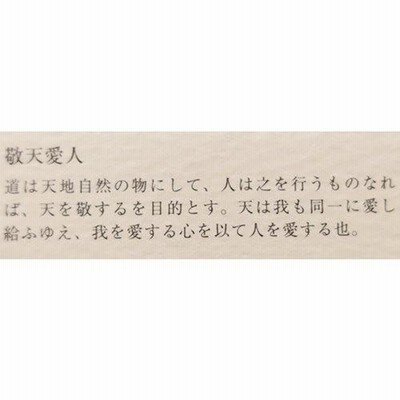 敬天愛人
道は天地自然の物にして、人は之を行うものなれ
ば、天を敬するを目的とす。天は我も同一に愛し
給ふゆえ、我を愛する心を以て人を愛する也。